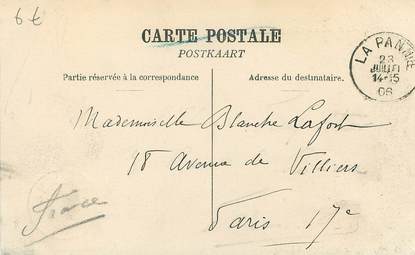 6 €
CARTE POSTALE
POSTKAART
Partie réservée à la correspondance
Adresse du destinataire.
LA PANNE
23
JUILLET
14-15
06
Mademoiselle Blanche Lafont
18 Avenue de Villiers
Paris 17e
France